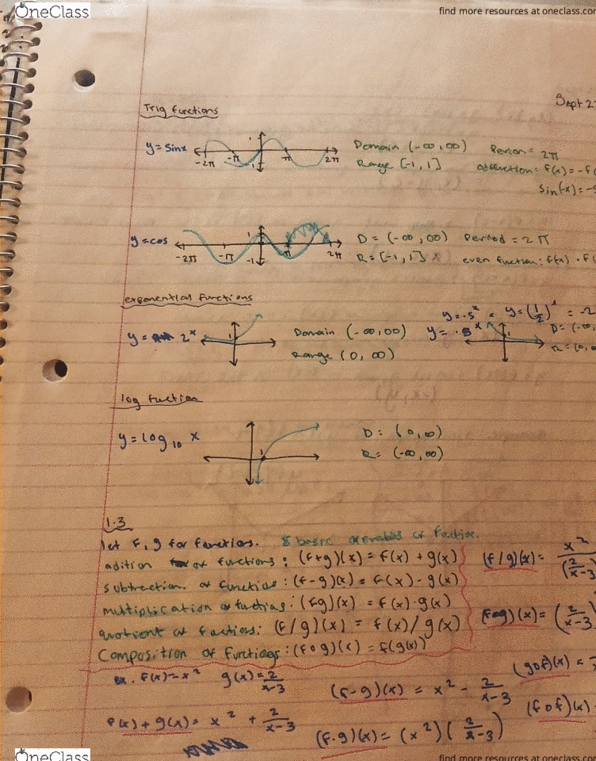 OneClass
find more resources at oneclass.com
Sept 2
Trig functions
y=sinx -2π -π π 2π 1 -1 Domain (-∞,∞) Period= 2π
Range [-1,1] f(x)=-f(
sin(-x)=-s
y=cos -2π -π 2π 1 -1 D = (-∞,∞) Period = 2π
R = [-1,1] even function: f(x) = f(
exponential functions
y = 2^x Domain (-∞,∞) y=.5^x
Range (0,∞)
y=.5^x = y=(1/2)^x = 2
D= (-∞,
R= (0,∞
log fuction
y=log10 x D: (0,∞)
R= (-∞,∞)
1.3
let f, g for functions. 5 basic
adition of functions: (f+g)(x) = f(x) + g(x) (f/g)(x)= x²/(2/x-3
subtraction of functions: (f-g)(x) = f(x) - g(x)
multiplication of functions: (fg)(x) = f(x)·g(x) (f∘g)(x) = (2/x-3
quotient of functions: (f/g)(x) = f(x)/g(x)
Composition of functions: (f∘g)(x) = f(g(x)) (g∘f)(x) =
ex. f(x)=x² g(x)=2/x-3 (f-g)(x) = x² - 2/x-3 (f∘f)(x)
f(x)+g(x)= x² + 2/x-3 (f·g)(x)= (x²)(2/x-3)
OneClass
find more resources at oneclass.com